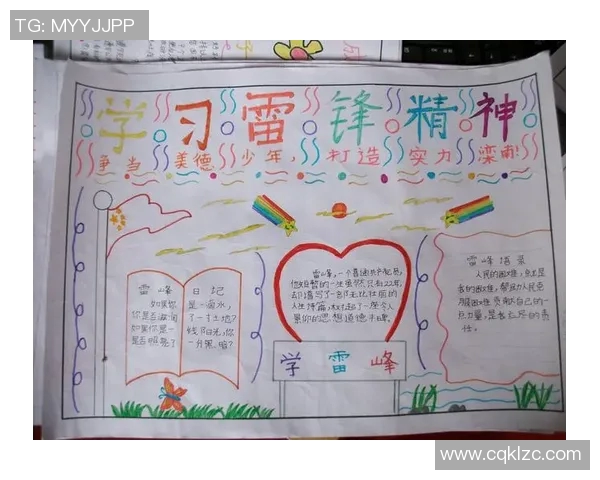 TG: MYYJJPP
学习雷锋精神
争当美德少年，打造实力滦南！
雷峰日记
如果你是一滴水，
你是否滋润了一寸土地？
如果你是一线阳光，你
是否照亮了一分黑暗？
雷峰，一个普通共产党员，
他短暂的一生虽然只有22年，
却谱写了一部无比壮丽的
人生诗篇，树起了一座令人
景仰的思想道德丰碑。
学雷峰
雷峰语录
人民的困难，就是
我的困难，帮助人民克
服困难，贡献自己的
一点力量，是我应尽的责
任。
www.cqklzc.com